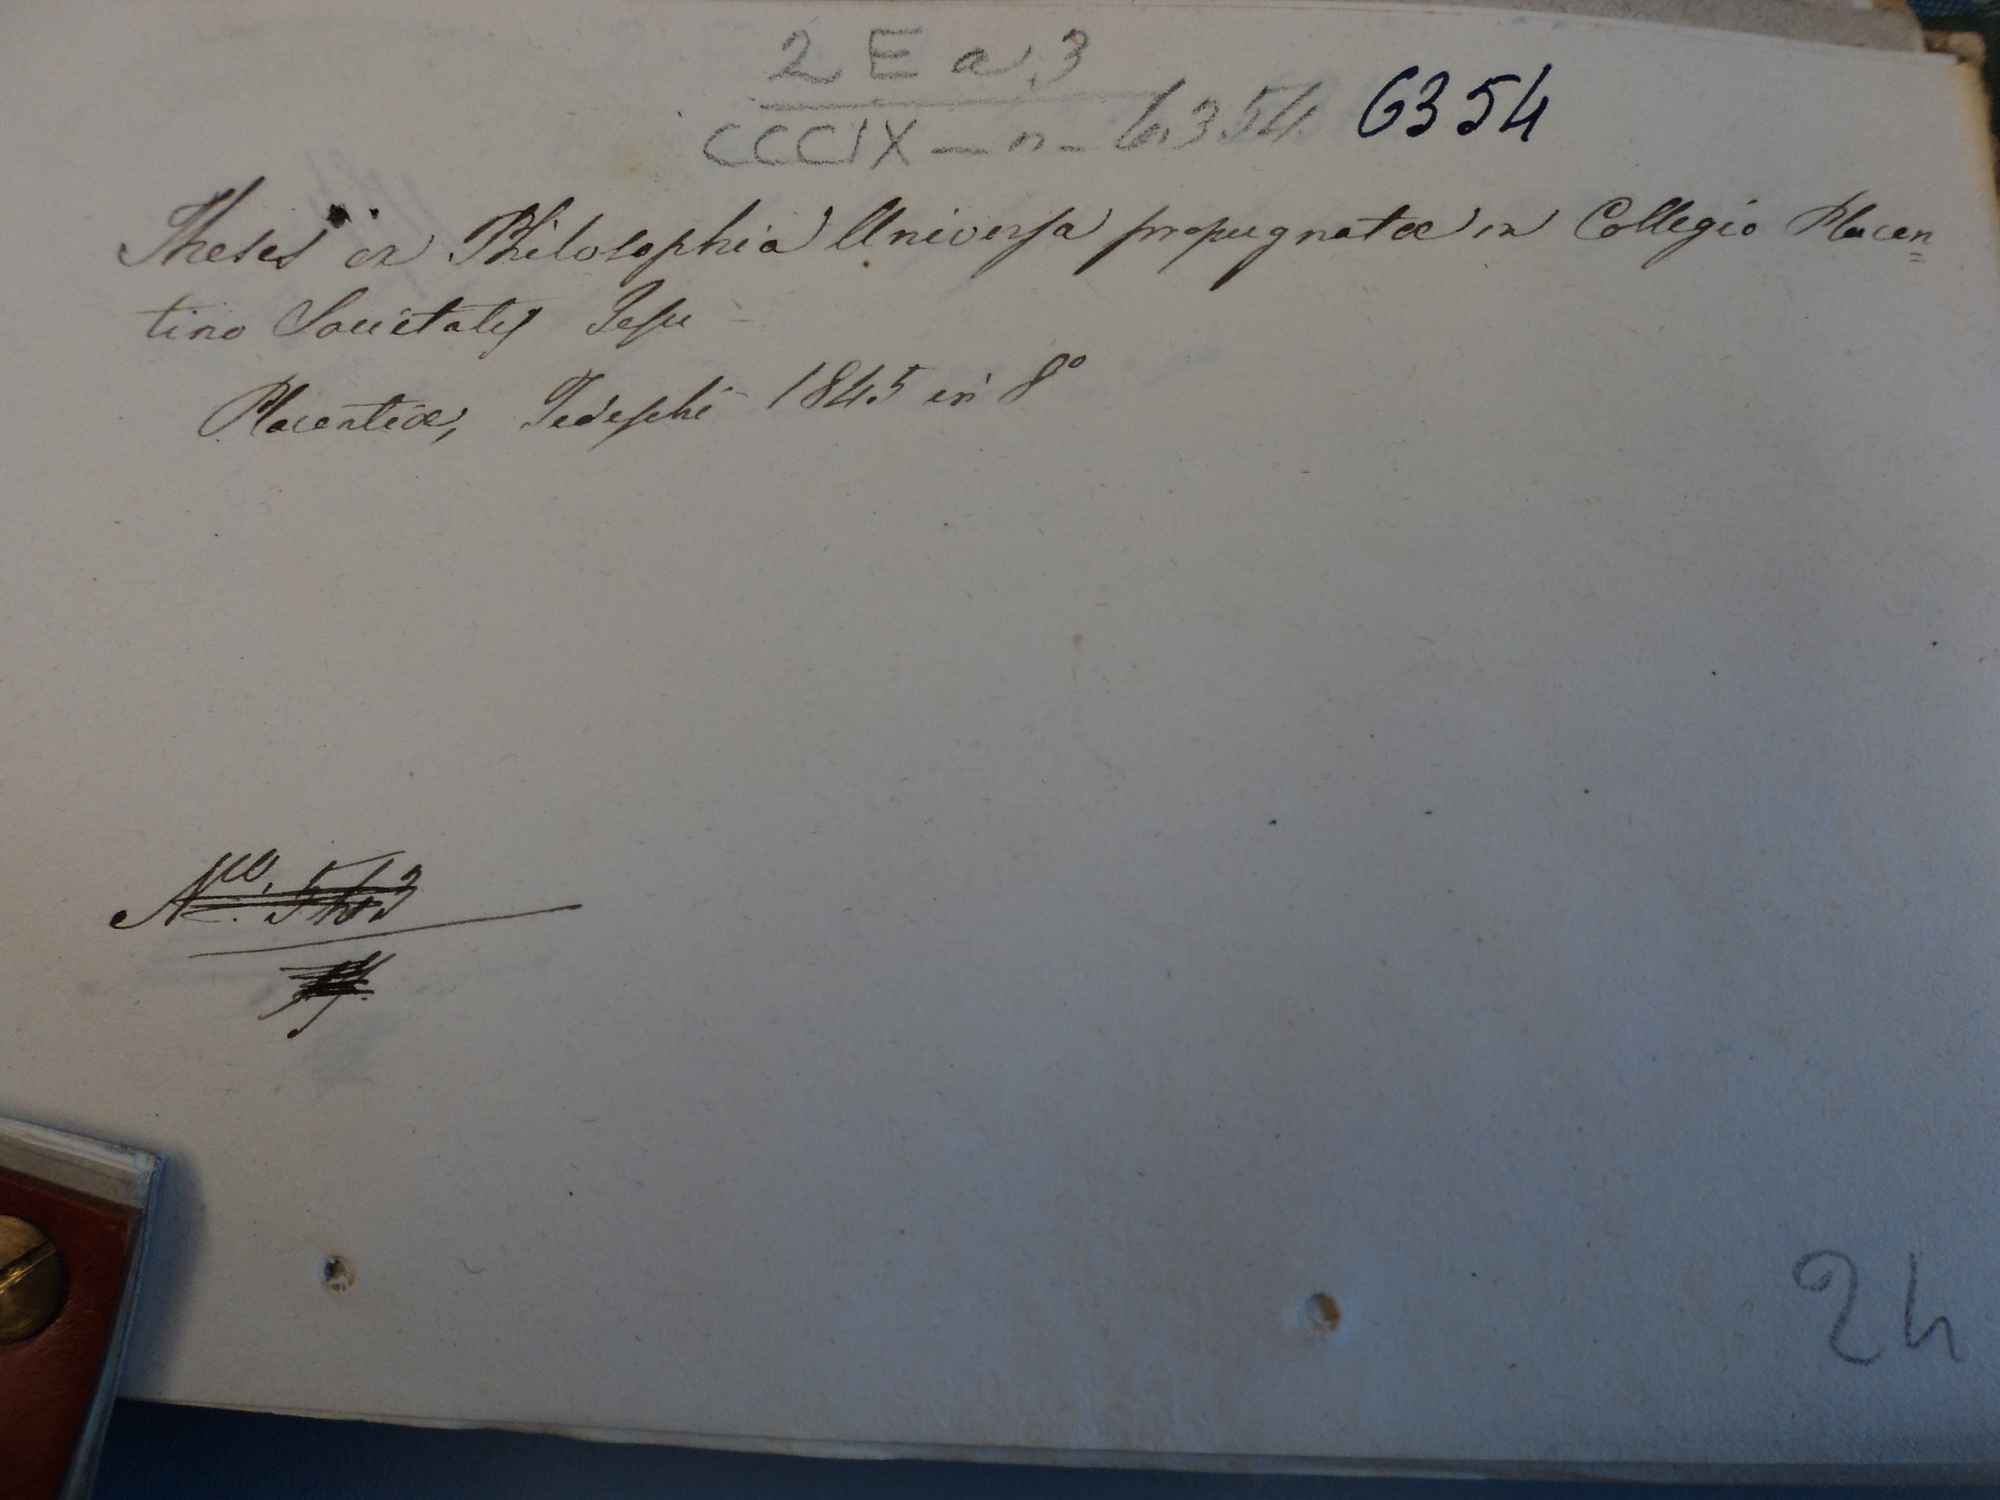 2 E a. 3
CCCIX - n - 6354. 6354
Theses ex Philosophia Universa propugnatæ in Collegio Placen=
tino Societatis Jesu -
Placentiæ, Tedeschi 1845 in 8°
Nco.
24